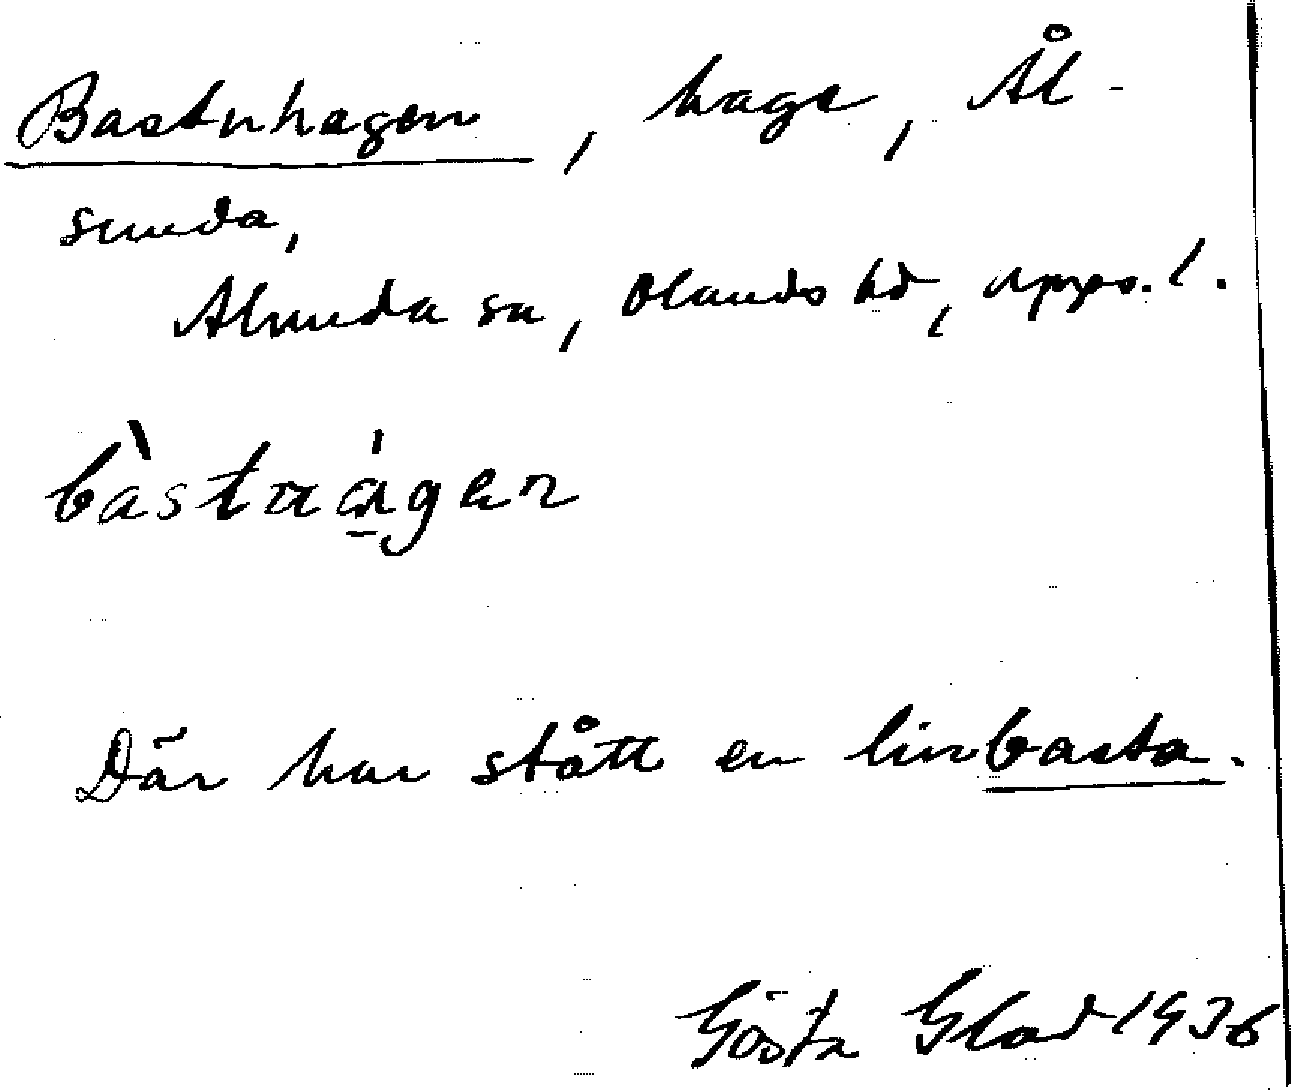 Bastuhagen, hage, Ål-
sunda,
Alunda sn, Olands hd, Upps. l.
bàstuágen
Där har stått en linbasta.
Gösta Glad 1936